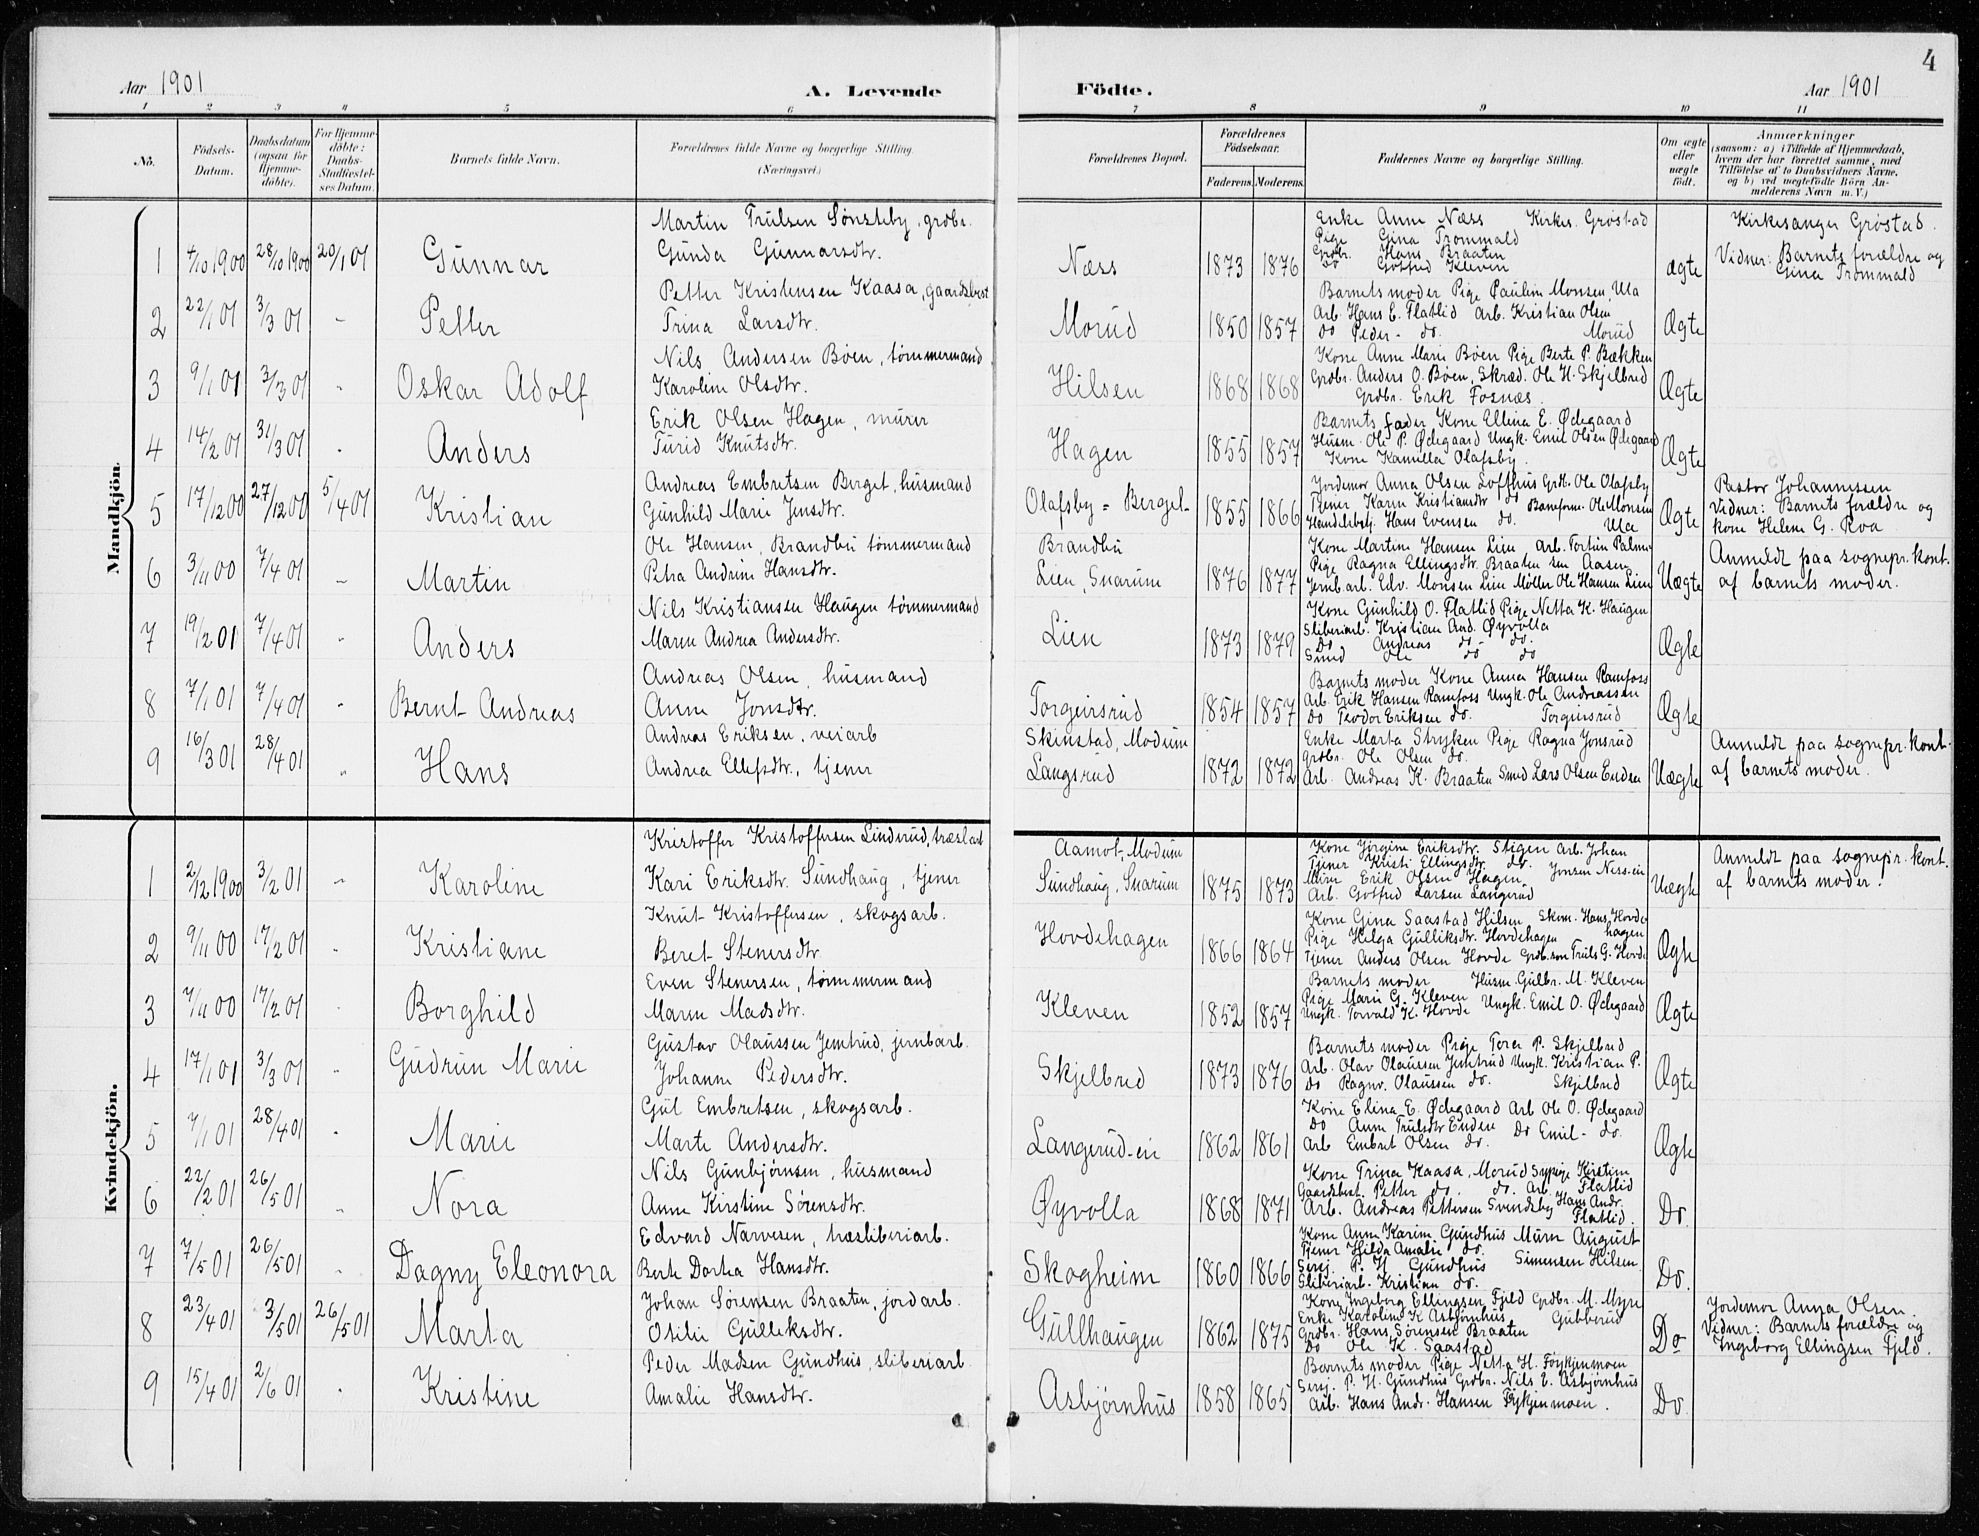 4
Aar 1901 A. Levende Födte. Aar 1901
1 2 3 4 5 6 7 8 9 10 11
No. Födsels-Datum. Daabsdatum (ogsaa for Hjemme-döbte). For Hjemme-döbte: Daabs-Stadfæstel-ses Datum. Barnets fulde Navn. Forældrenes fulde Navne og borgerlige Stilling. (Næringsvei.) Forældrenes Bopæl. Forældrenes Födselsaar. Faderens. Moderens. Faddernes Navne og borgerlige Stilling. Om ægte eller uægte födt. Anmærkninger (saasom: a) i Tilfælde af Hjemmedaab, hvem der har forrettet samme, med Tilföielse af to Daabsvidners Navne, og b) ved uægtefödte Börn Anmelderens Navn m. V.)
Mandkjön.
1 4/10 1900 28/10 1900 20/1 01 Gunnar
Martin Trulsen Sønsteby, grdbr.
Gunda Gunnarsdtr.
Næss 1873 1876
Enke Anne Næss Kirkes. Grøstad
Pige Gina Trommald
Grdbr. Hans Braaten
Do Gotfred Kleven
ægte
Kirkesanger Grøstad.
Vidner: Barnets forældre og
Gina Trommald
2 22/1 01 3/3 01 " Petter
Petter Kristensen Kaasa, gaardsbest
Trina Larsdtr.
Morud 1850 1857
Barnets moder Pige Paulin Monsen, Ula
Arb. Hans E. Flatlid Arb. Kristian Olsen
do Peder - do. Morud
Ægte
3 9/1 01 3/3 01 " Oskar Adolf
Nils Andersen Bøen, tømmermand
Karolin Olsdtr.
Hilsen 1868 1868
Kone Anne Marie Bøen Pige Berte P. Bækken
Grdbr. Anders O. Bøen, Skræd. Ole H. Skjelbred
Grdbr. Erik Fosnæs.
Ægte
4 14/2 01 31/3 01 " Anders
Erik Olsen Hagen, murer
Turid Knutsdtr.
Hagen 1855 1857
Barnets fader Kone Ellina E. Ødegaard
Husm. Ole P. Ødegaard Ungk. Emil Olsen Ødegaard
Kone Kamilla Olafsby.
Ægte
5 17/12 00 27/12 00 5/4 01 Kristian
Andreas Embretsen Berget, husmand
Gunhild Marie Jensdtr.
Olafsby = Berget 1855 1866
Jordemor Anna Olsen Loffhus Grdb. Ole Olafsby
Tjener Karen Kristiansdtr do Baneform. Ole Monsen
Handelsbetj. Hans Evensen do. Ula
Ægte
Pastor Johannessen
Vidner: Barnets forældre og
kone Helene G. Roa
6 3/11 00 7/4 01 " Martin
Ole Hansen, Brandbu tømmermand
Petra Andrine Hansdtr.
Brandbu
Lien, Snarum 1876 1877
Kone Martine Hansen Lien Arb. Torstein Palme
Pige Ragna Ellingsdtr. Braaten sen Aasen
Jernb.arb. Edv. Monsen Lien Møller Ole Hansen Lien
Uægte
Anmeldt paa sognepr. kont.
af barnets moder.
7 19/2 01 7/4 01 " Anders
Nils Kristiansen Haugen tømmermand
Maren Andrea Andersdtr.
Lien 1873 1879
Kone Gunhild O. Flatlid Pige Netta K. Haugen
Sliberiarb. Kristian And. Øyvolla
Do Andreas do do.
Smed Ole do do
Ægte
8 7/1 01 7/4 01 " Bernt Andreas
Andreas Olsen, husmand
Anne Jonsdtr.
Torgeirsrud 1854 1857
Barnets moder Kone Anna Hansen Ramfoss
Arb. Erik Hansen Ramfoss Ungk. Ole Andreassen
Do Teodor Eriksen do. Torgeirsrud
Ægte
9 16/3 01 28/4 01 " Hans
Andreas Eriksen, veiarb
Andrea Ellefsdtr., tjener
Skinstad, Modum
Langsrud 1872 1872
Enke Marta Stryken Pige Ragna Jonsrud
Grdbr. Ole Olsen do.
Arb. Andreas K. Braaten Smed Lars Olsen Enden
Uægte
Anmeldt paa sognepr. kont.
af barnets moder.
Kvindekjön.
1 2/12 1900 3/2 01 " Karoline
Kristoffer Kristoffersen Linderud, træslarb
Kari Eriksdtr. Sundhaug, tjener
Aamot, Modum
Sundhaug, Snarum 1875 1873
Kone Jørgine Eriksdtr. Stigen Arb. Johan
Tjener Kristi Ellingsdtr do. Jonsen Ness-eie
Murer Erik Olsen Hagen
Arb. Gotfred Larsen Langerud
Uægte
Anmeldt paa sognepr. kont.
af barnets moder.
2 9/11 00 17/2 01 " Kristiane
Knut Kristoffersen, skogsarb.
Beret Stenersdtr
Hovdehagen 1866 1864
Kone Gina Saastad Hilsen Skom. Hans Hovde-
Pige Helga Gulliksdtr. Hovdehagen hagen
Tjener Anders Olsen Hovde Grdb.søn Truls G. Hovde
Ægte
3 7/11 00 17/2 01 " Borghild
Even Stenersen, tømmermand
Maren Madsdtr.
Kleven 1852 1857
Barnets moder Husm. Gulbr. M. Kleven
Pige Marie G. Kleven Ungk. Emil O. Ødegaard
Ungk. Torvald K. Hovde
Ægte
4 17/1 01 3/3 01 " Gudrun Marie
Gustav Olaussen Jemtrud, jernbarb.
Johanne Pedersdtr.
Skjelbred 1873 1876
Barnets moder Pige Tora P. Skjelbred
Arb. Olav Olaussen Jemtrud Ungk. Kristian P.
Do Ragnv. Olaussen do. Skjelbred
Ægte
5 7/1 01 28/4 01 " Marie
Gul Embretsen, skogsarb.
Marte Andersdtr.
Langerud-eie 1862 1861
Kone Elina E. Ødegaard Arb Ole O. Ødegaard
Do Anne Trulsdtr Enden Do Emil - do.
Arb Embret Olsen do.
Ægte
6 22/2 01 26/5 01 " Nora
Nils Gunbjørnsen, husmand
Anne Kirstine Sørensdtr.
Øyvolla 1868 1871
Kone Trina Kaasa, Morud Sypige Kirstine
Gaardsbest. Petter do. do. Arb. Flatlid
Arb. Andreas Pettersen Svendsby Hans Andr.
Flatlid.
Do.
7 7/5 01 26/5 01 " Dagny Eleonora
Edvard Narvesen, træsliberiarb.
Berte Dortea Hansdtr.
Skogheim 1860 1866
Kone Anne Karine Gundhus Murer August
Tjener Hilda Amalie do.
Sersj. P. H. Gundhus Simensen Hilsen
Sliberiarb. Kristian do.
Do.
8 23/4 01 3/5 01 26/5 01 Marta
Johan Sørensen Braaten, jordarb.
Otilie Gulliksdtr.
Gullhaugen 1862 1875
Kone Ingeborg Ellingsen Fjeld Grdbr. M. Myre
Enke Karoline K. Asbjørnhus Gubberud
Grdbr. Hans Sørensen Braaten
Do Ole K. Saastad
Do
Jordemor Anna Olsen.
Vidner: Barnets forældre og
Ingeborg Ellingsen Fjeld.
9 15/4 01 2/6 01 " Kristine
Peder Madsen Gundhus, sliberiarb
Amalie Hansdtr.
Asbjørnhus 1858 1865
Barnets moder Pige Netta H. Frykjenmoen
Sersj. P. H. Gundhus Grdbr. Nils E. Asbjørnhus
Arb. Hans Andr. Hansen Frykjenmoen.
Do.